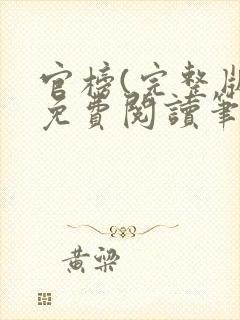 官榜(完整版
免費閱讀筆
黃梁